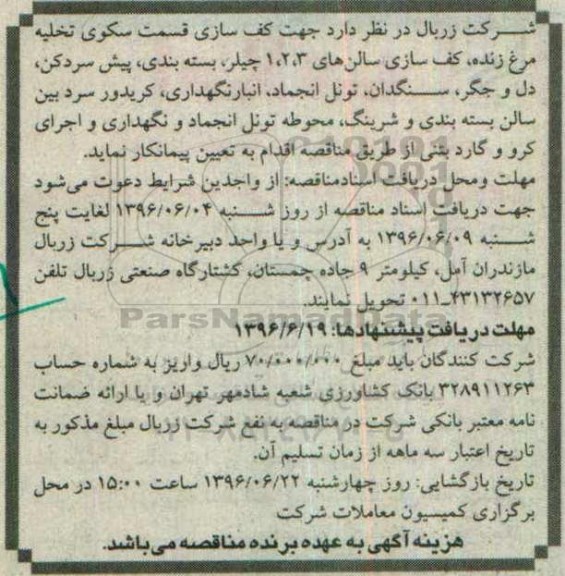 شرکت زربال در نظر دارد جهت کف سازی قسمت سکوی تخلیه
مرغ زنده، کف سازی سالن‌های ۱،۲،۳ چیلر، بسته بندی، پیش سردکن،
دل و جگر، سنگدان، تونل انجماد، انبارنگهداری، کریدور سرد بین
سالن بسته بندی و شرینگ، محوطه تونل انجماد و نگهداری و اجرای
کرو و گارد بتنی از طریق مناقصه اقدام به تعیین پیمانکار نماید.
مهلت ومحل دریافت اسنادمناقصه: از واجدین شرایط دعوت می‌شود
جهت دریافت اسناد مناقصه از روز شنبه ۱۳۹۶/۰۶/۰۴ لغایت پنج
شنبه ۱۳۹۶/۰۶/۰۹ به آدرس و یا واحد دبیرخانه شرکت زربال
مازندران آمل، کیلومتر ۹ جاده چمستان، کشتارگاه صنعتی زربال تلفن
۴۳۱۳۲۶۵۷-۰۱۱ تحویل نمایند.
ParsNamadData
مهلت دریافت پیشنهادها: ۱۳۹۶/۶/۱۹
شرکت کنندگان باید مبلغ ۷۰/۰۰۰/۰۰۰ ریال واریز به شماره حساب
۳۲۸۹۱۱۲۶۳ بانک کشاورزی شعبه شادمهر تهران و یا ارائه ضمانت
نامه معتبر بانکی شرکت در مناقصه به نفع شرکت زربال مبلغ مذکور به
تاریخ اعتبار سه ماهه از زمان تسلیم آن.
تاریخ بازگشایی: روز چهارشنبه ۱۳۹۶/۰۶/۲۲ ساعت ۱۵:۰۰ در محل
برگزاری کمیسیون معاملات شرکت
هزینه آگهی به عهده برنده مناقصه می باشد.